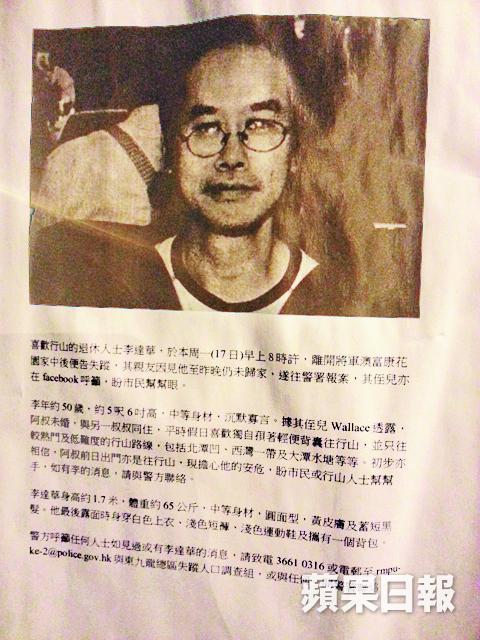 喜歡行山的退休人士李達華，於本周一(17日)早上8時許，離開將軍澳富康花
園家中後便告失蹤，其親友因見他至昨晚仍未歸家，遂往警署報案，其侄兒亦
在 facebook呼籲，盼市民幫幫眼。
李年約50歲，約5呎6吋高，中等身材，沉默寡言。據其侄兒 Wallace 透露，
阿叔未婚，與另一叔叔同住，平時假日喜歡獨自孭著輕便背囊往行山，並只往
較熱門及低難度的行山路線，包括北潭凹、西灣一帶及大潭水塘等等。初步亦
相信，阿叔前日出門亦是往行山，現擔心他的安危，盼市民或行山人士幫幫
手，如有李的消息，請與警方聯絡。
李達華身高約1.7米，體重約65公斤，中等身材，圓面型，黃皮膚及蓄短黑
髮。他最後露面時身穿白色上衣、淺色短褲、淺色運動鞋及攜有一個背包。
警方呼籲任何人士如見過或有李達華的消息，請致電 3661 0316 或電郵至 rmpu-
ke-2@police.gov.hk 與東九龍總區失蹤人口調查組，或與任何
蘋果日報